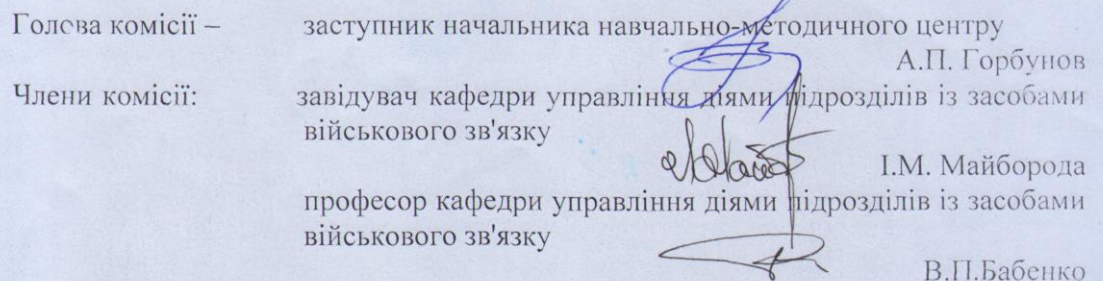 Голова комісії – заступник начальника навчально-методичного центру
А.П. Горбунов
Члени комісії: завідувач кафедри управління діями підрозділів із засобами
військового зв'язку
І.М. Майборода
професор кафедри управління діями підрозділів із засобами
військового зв'язку
В.П.Бабенко